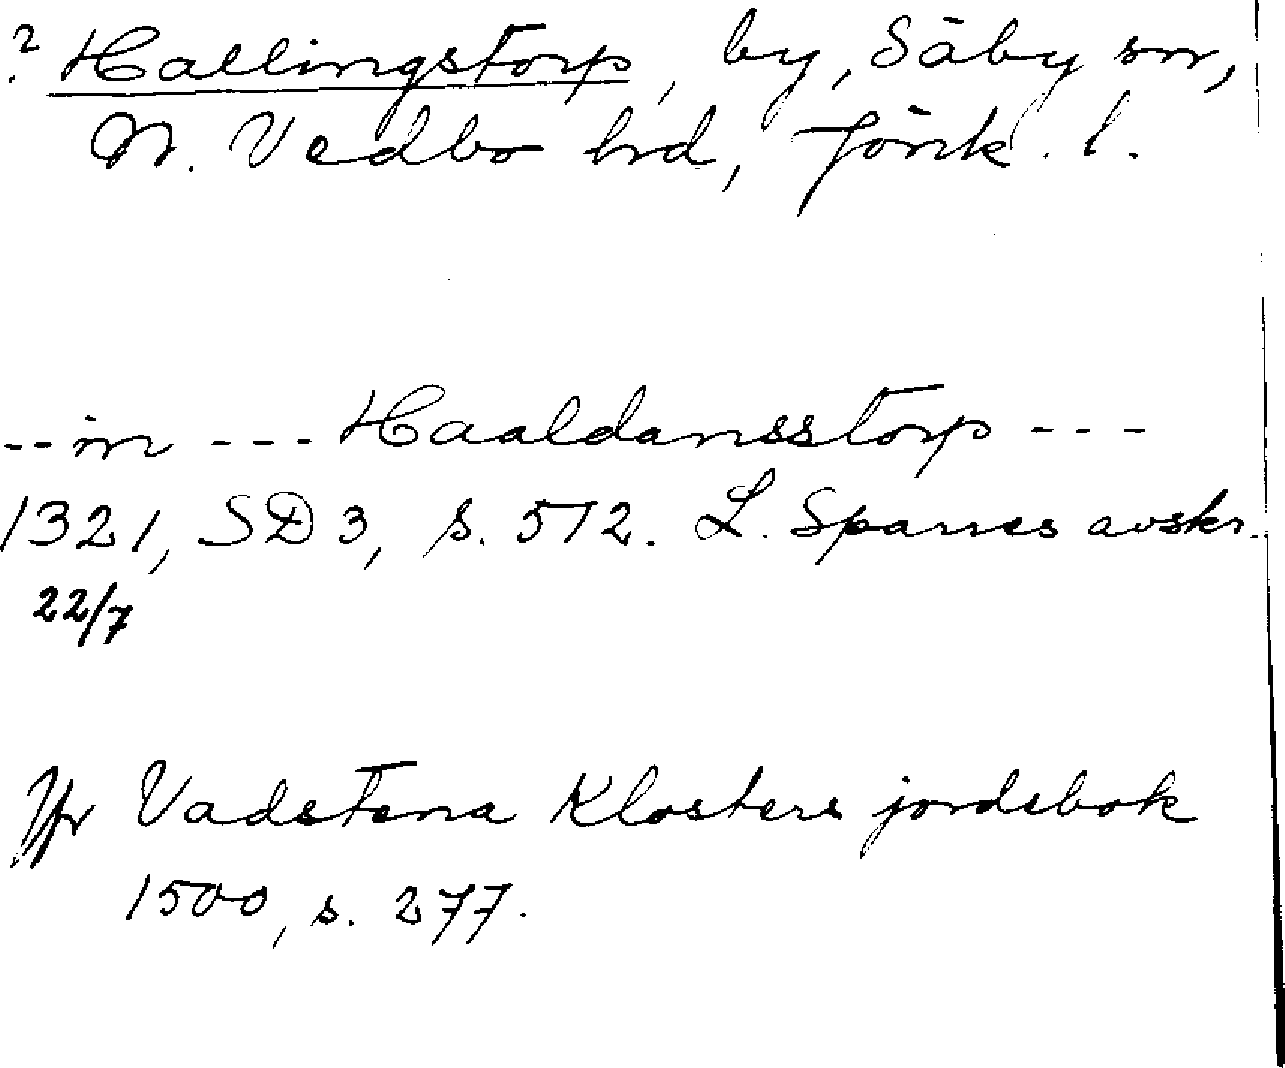 ? Hallingstorp, by, Säby sn,
N. Vedbo hd, Jönk. l.
-- in --- Haaldansstorp ---
1321, SD 3, s. 512. L. Sparres avskr.
22/7
Jfr Vadstena Klosters jordebok
1500, s. 277.